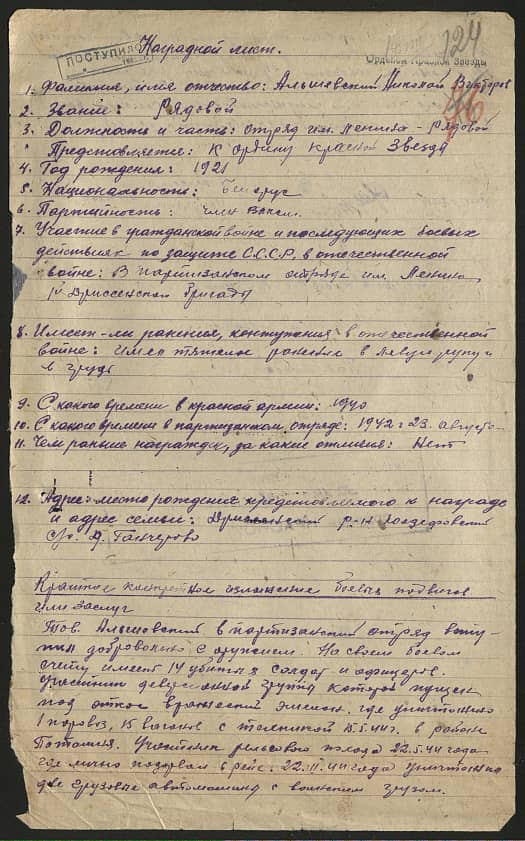 ПОСТУПИЛО
Наградной лист.
124
Орденом Красной Звезды
1. Фамилия, имя отчество: Альшевский Николай Викторов
2. Звание: Рядовой
3. Должность и часть: отряд им. Ленина - Рядовой
Представляется: К ордину Красной Звезда
4. Год рождения: 1921
5. Национальность: Белорус
6. Партийность: член ВЛКСМ.
7. Участие в гражданской войне и последующих боевых
действиях по защите С.С.С.Р. в отечественной
войне: В партизанском отряде им. Ленина
Дриссенская Бригада
8. Имеет-ли ранения, контузения в отечественной
войне: имеет тяжелое ранение в левую руку и
в грудь
9. С какого времени в красной армии: 1940
10. С какого времени в партизанском отряде: 1942 г 23. августа
11. Чем раньше награжден, за какие отличия: Нет
12. Адрес: место рождения представляемого к награде
и адрес семьи: Дриссенский р-н
с/с. д. Ганчерово
Краткое конкретное изложение боевых подвигов
или заслуг
Тов. Альшевский в партизанский отряд всту-
пил добровольно с оружием. На своем боевом
счету имеет 14 убитых солдат и офицеров.
Участник диверсионной группы которой пущен
под откос вражеский эшелон, где уничтожено
1 паровоз, 15 вагонов с техникой 15.5.44г. в районе
Участник рельсового похода 22.5.44 года
где лично подорвал 6 рельс. 22.II.44 года уничтожено
две грузовые автомашины с воинским грузом.